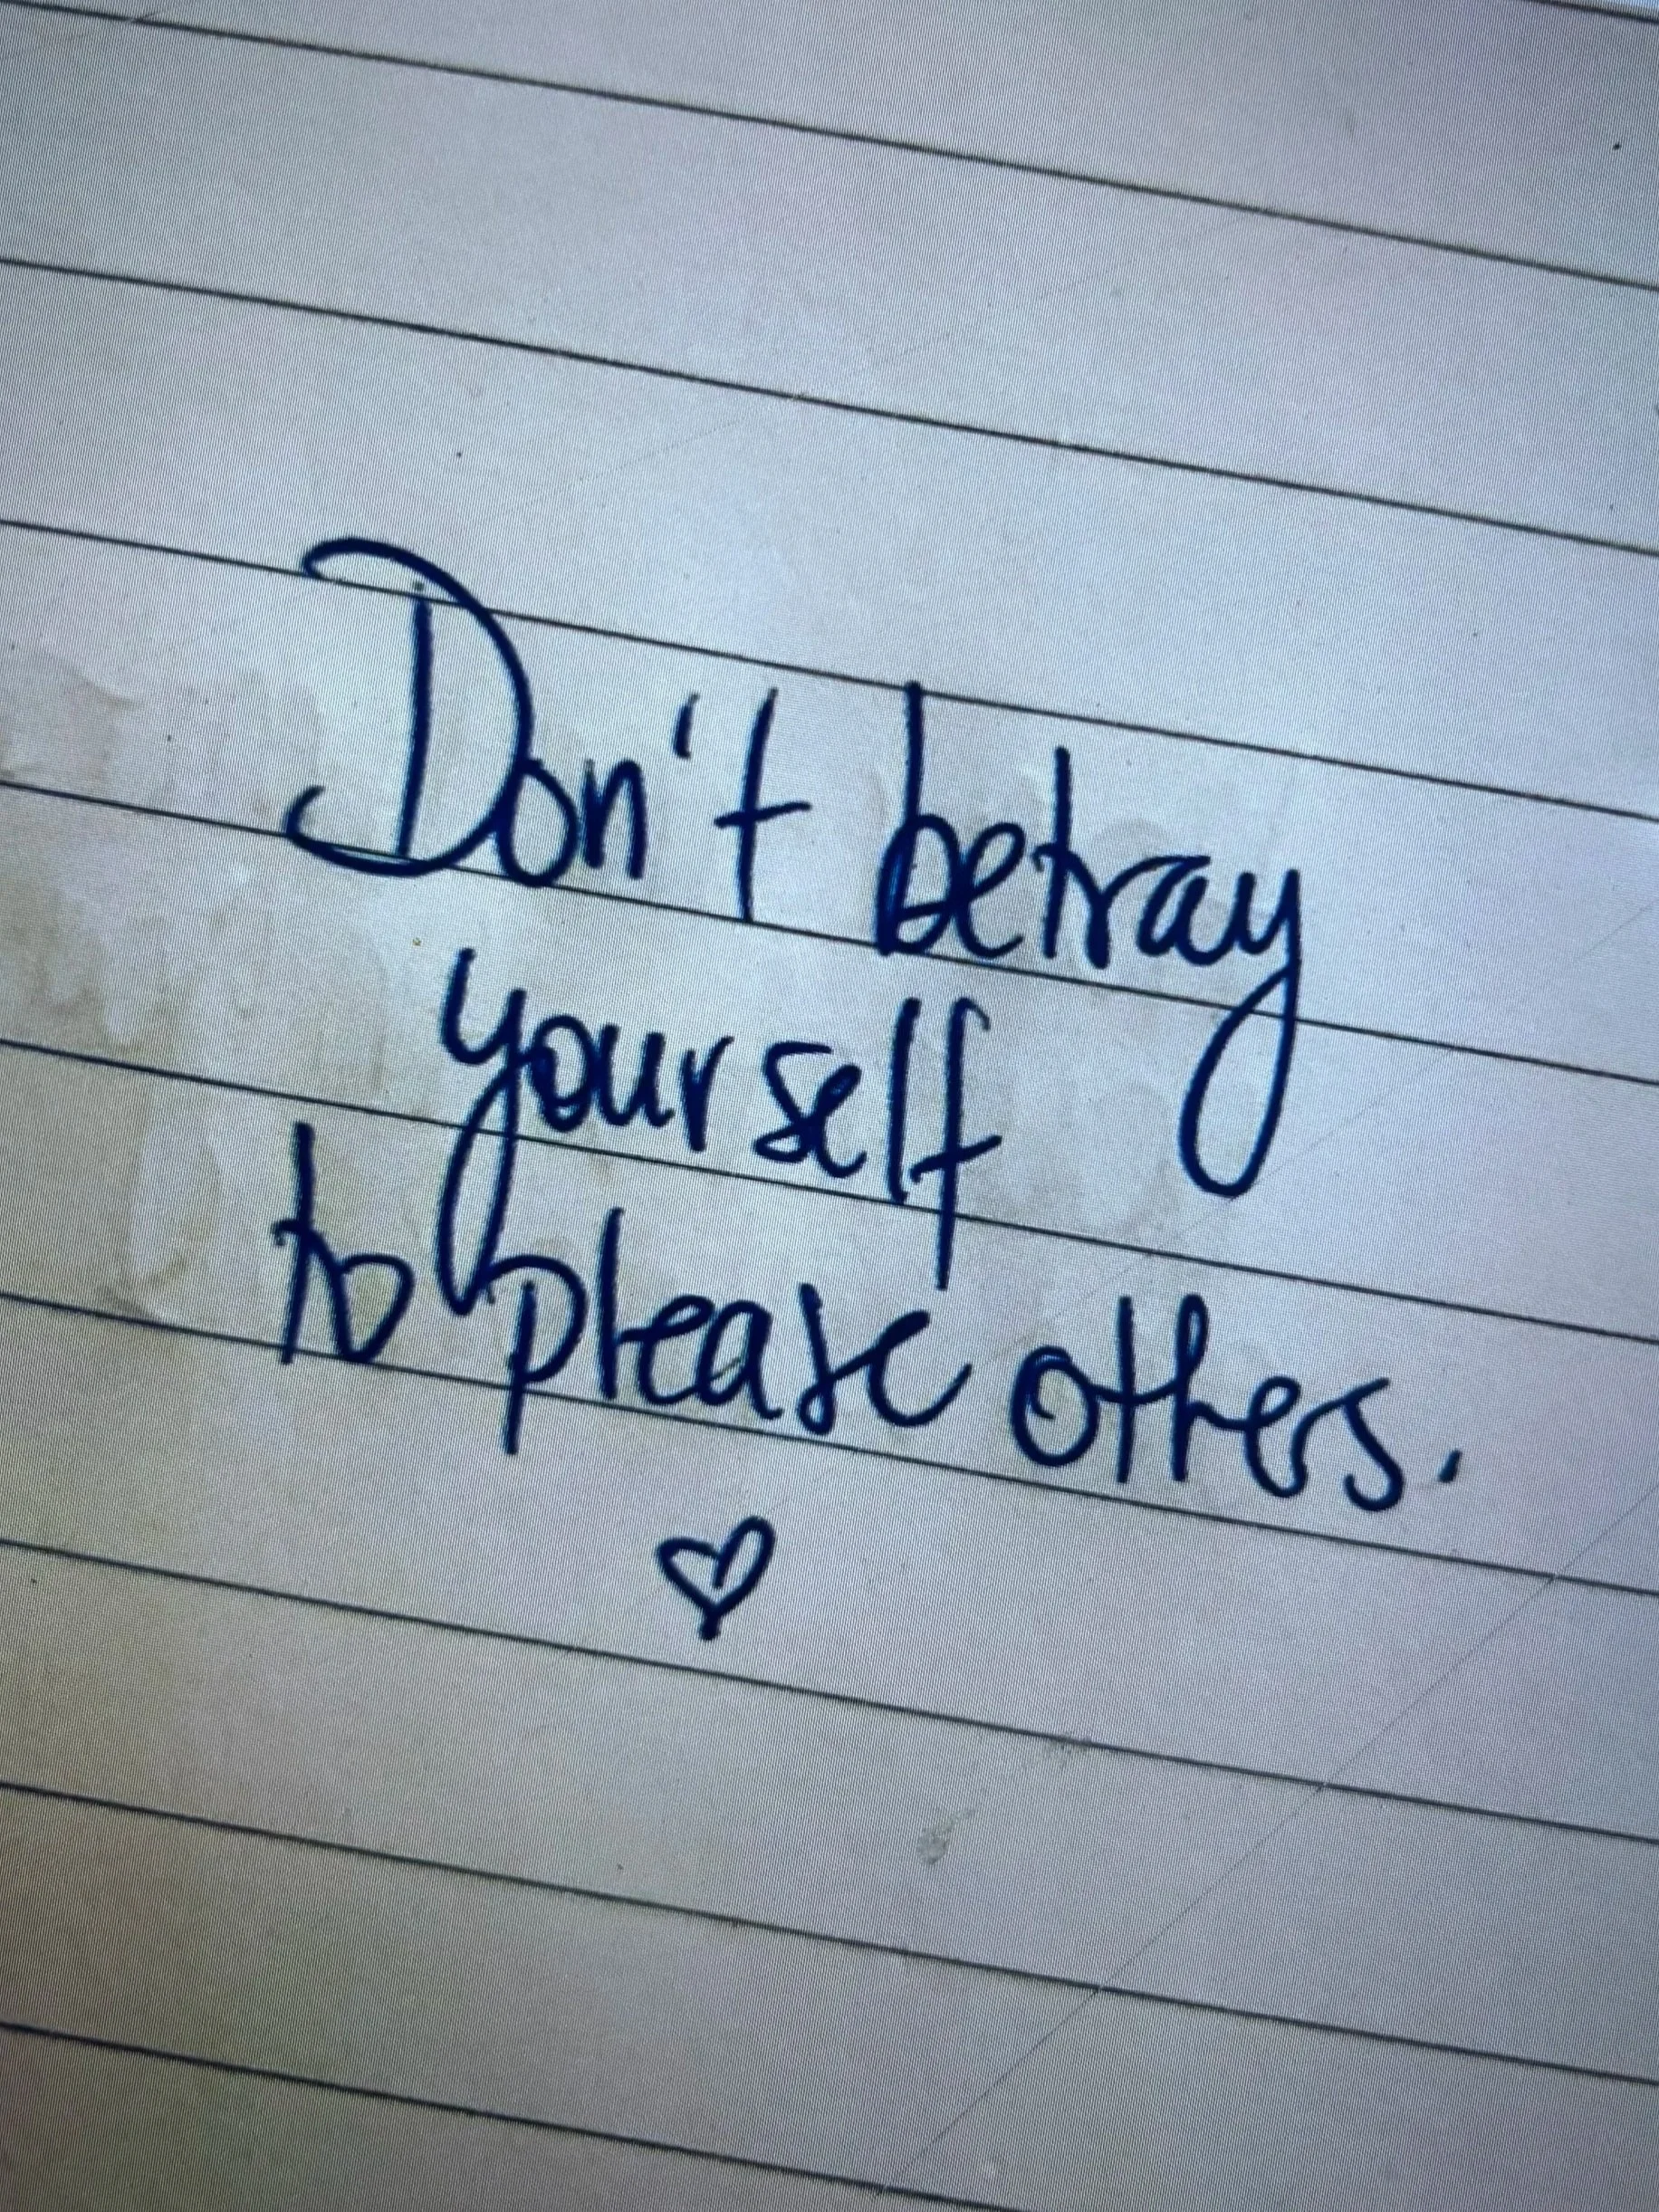 Don't betray
yourself
to please others.